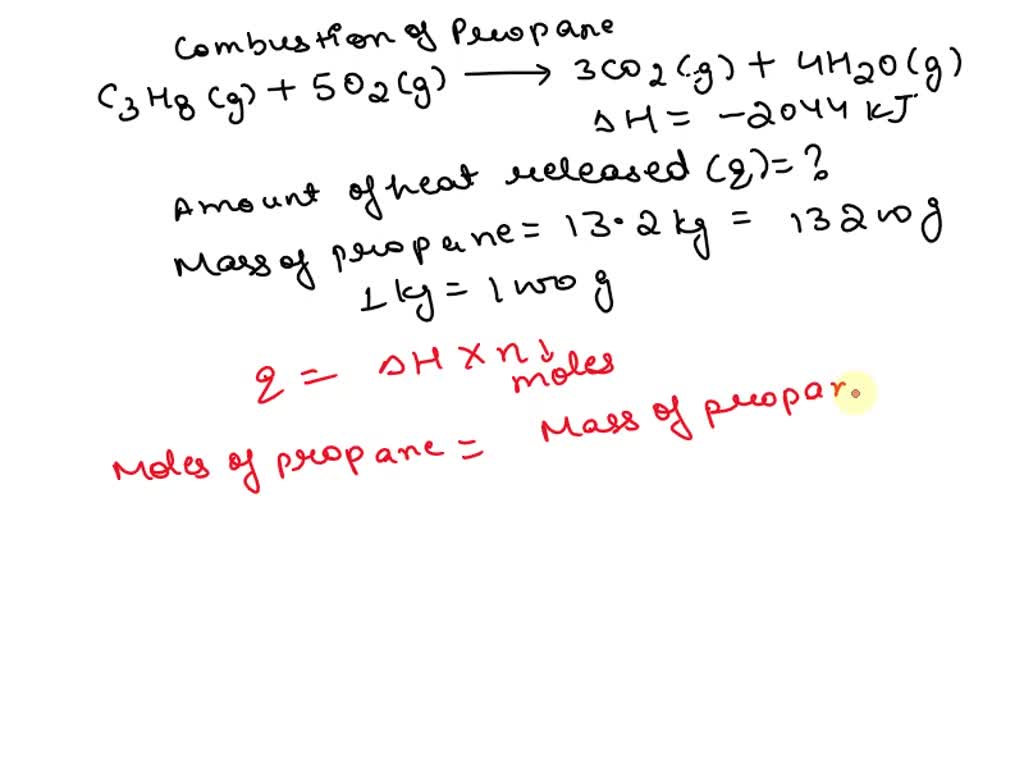 Combustion of Propane
C3H8 (g) + 5O2 (g) ⟶ 3CO2 (g) + 4H2O (g)
ΔH = -2044 KJ
Amount of heat released (q) = ?
Mass of propane = 13.2 kg = 13200 g
1 kg = 1000 g
q = ΔH × n ↓
moles
Moles of propane = Mass of propan